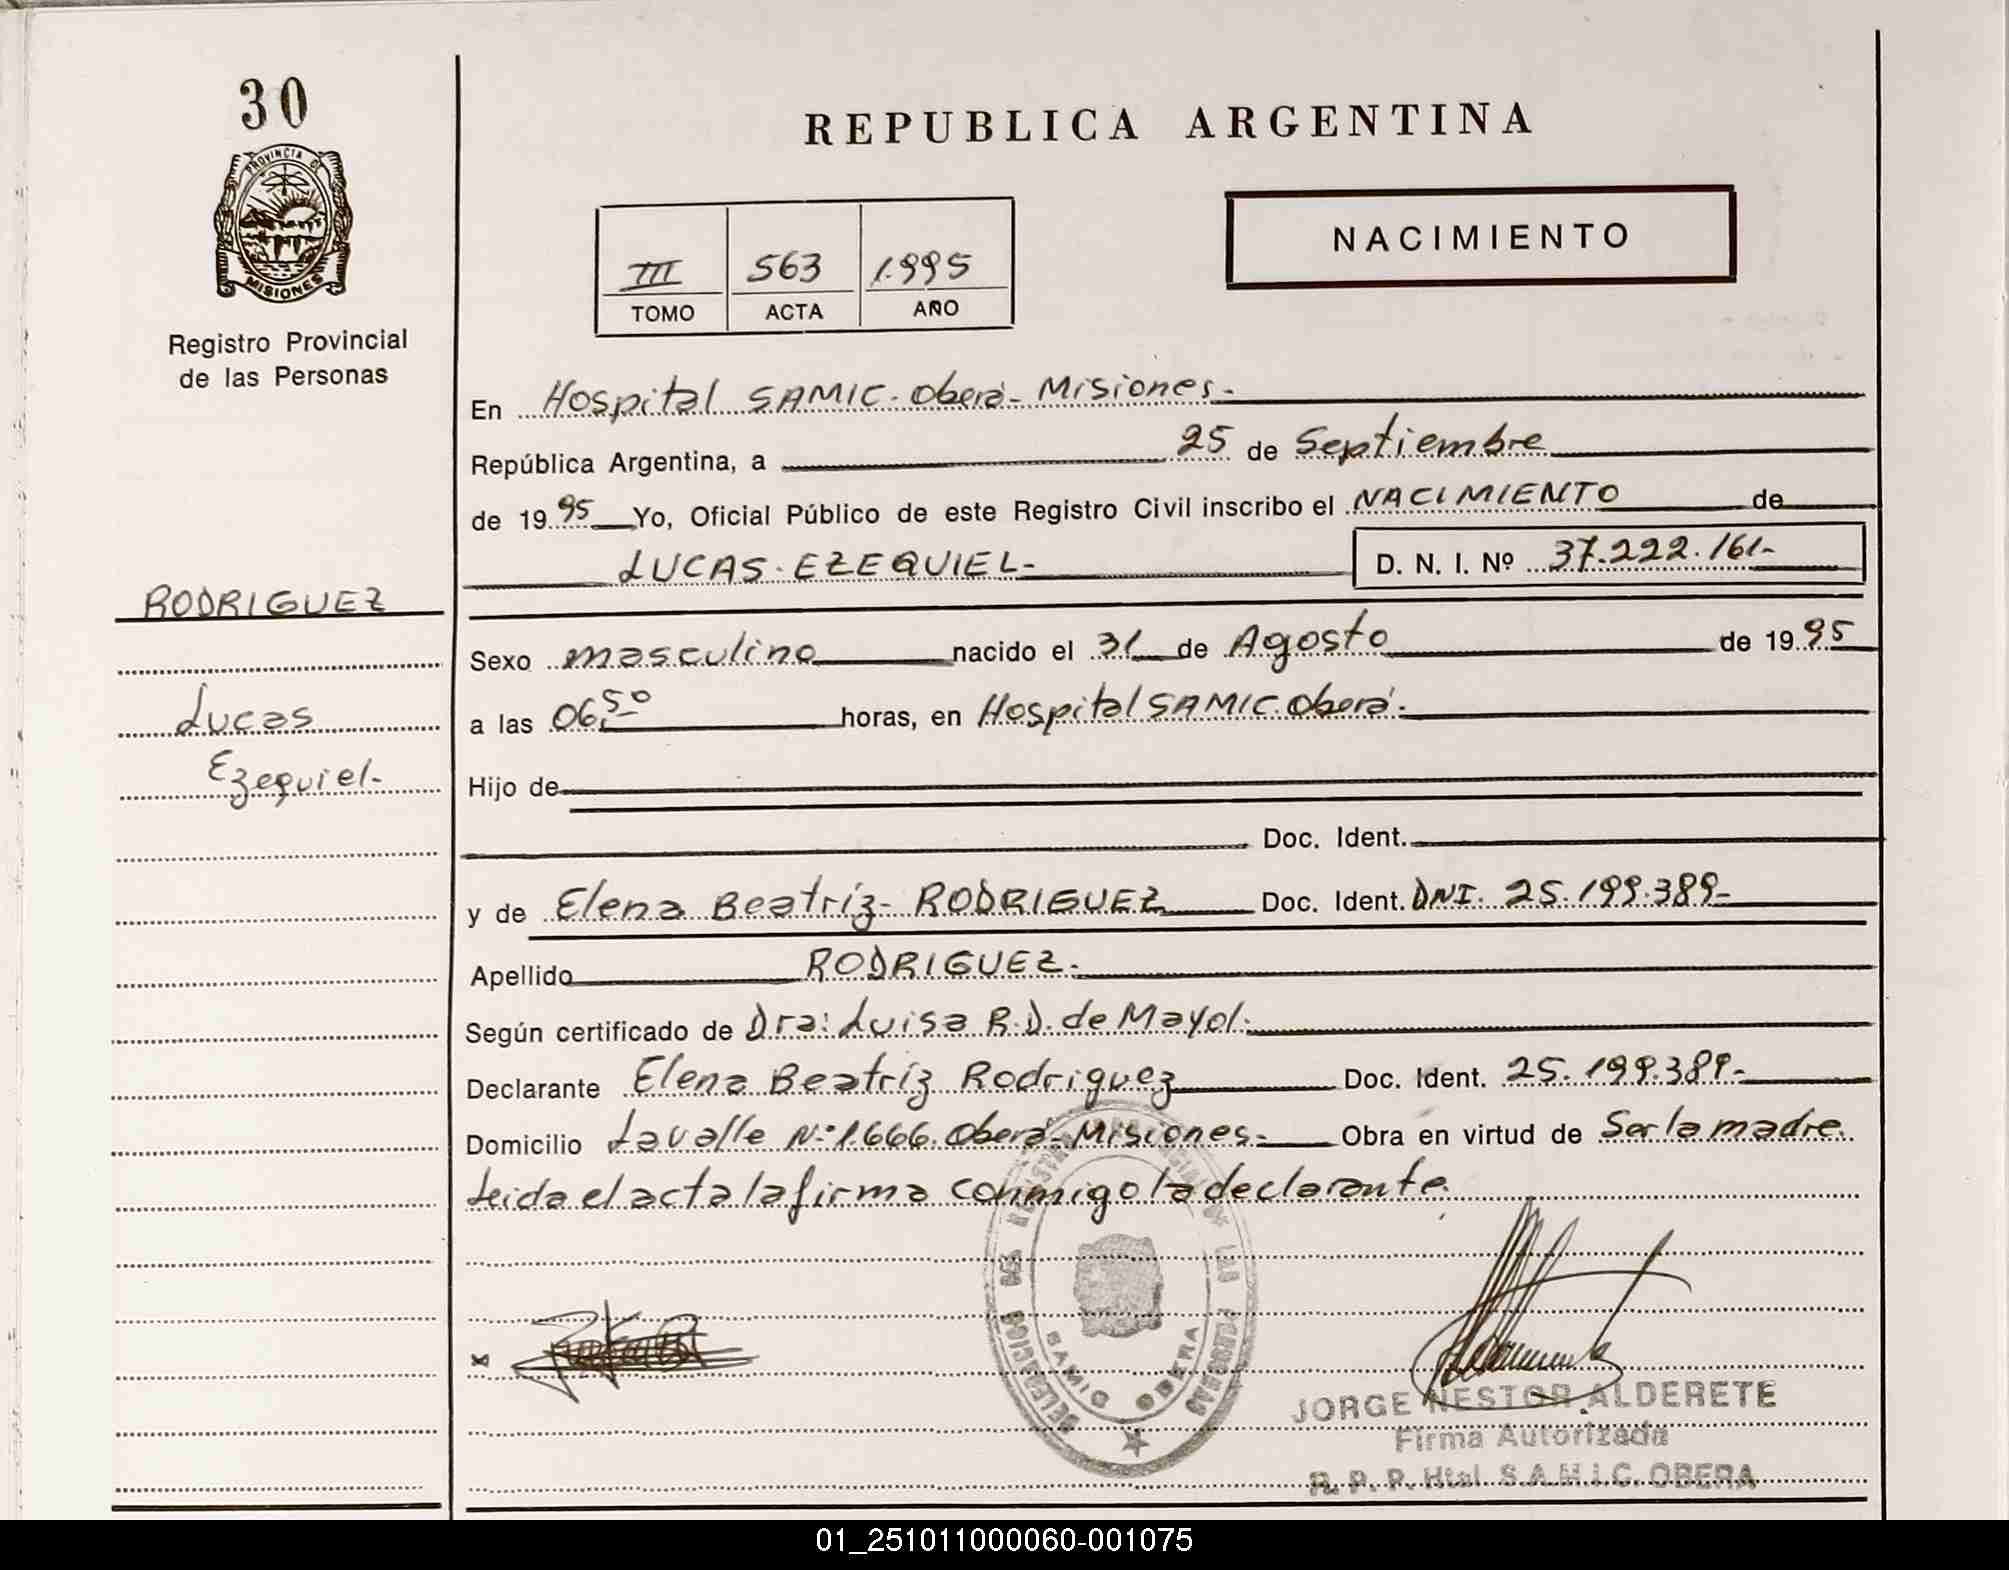 30
PROVINCIA DE
MISIONES
Registro Provincial
de las Personas
RODRIGUEZ
Lucas
Ezequiel-
REPUBLICA ARGENTINA
NACIMIENTO
III 563 1.995
TOMO ACTA AÑO
En Hospital SAMIC. Oberá- Misiones-
República Argentina, a 25 de Septiembre
de 1995 Yo, Oficial Público de este Registro Civil inscribo el NACIMIENTO de
LUCAS EZEQUIEL- D. N. I. Nº 37.222.161-
Sexo masculino nacido el 31 de Agosto de 1995
a las 06,50 horas, en Hospital SAMIC. Oberá.
Hijo de
Doc. Ident.
y de Elena Beatríz- RODRIGUEZ Doc. Ident. DNI. 25.199.389-
Apellido RODRIGUEZ-
Según certificado de Dra: Luisa R.D. de Mayol.
Declarante Elena Beatríz Rodriguez Doc. Ident. 25.199.389.-
Domicilio Lavalle N:º 1.666. Oberá- Misiones- Obra en virtud de Ser la madre.
Leida el acta la firma conmigo la declarante.
x
DELEGACION DEL REGISTRO PROVINCIAL DE LAS PERSONAS
SAMIC OBERA
JORGE NESTOR ALDERETE
Firma Autorizada
R. P. P. Htal. S.A.M.I.C. OBERA
01_251011000060-001075